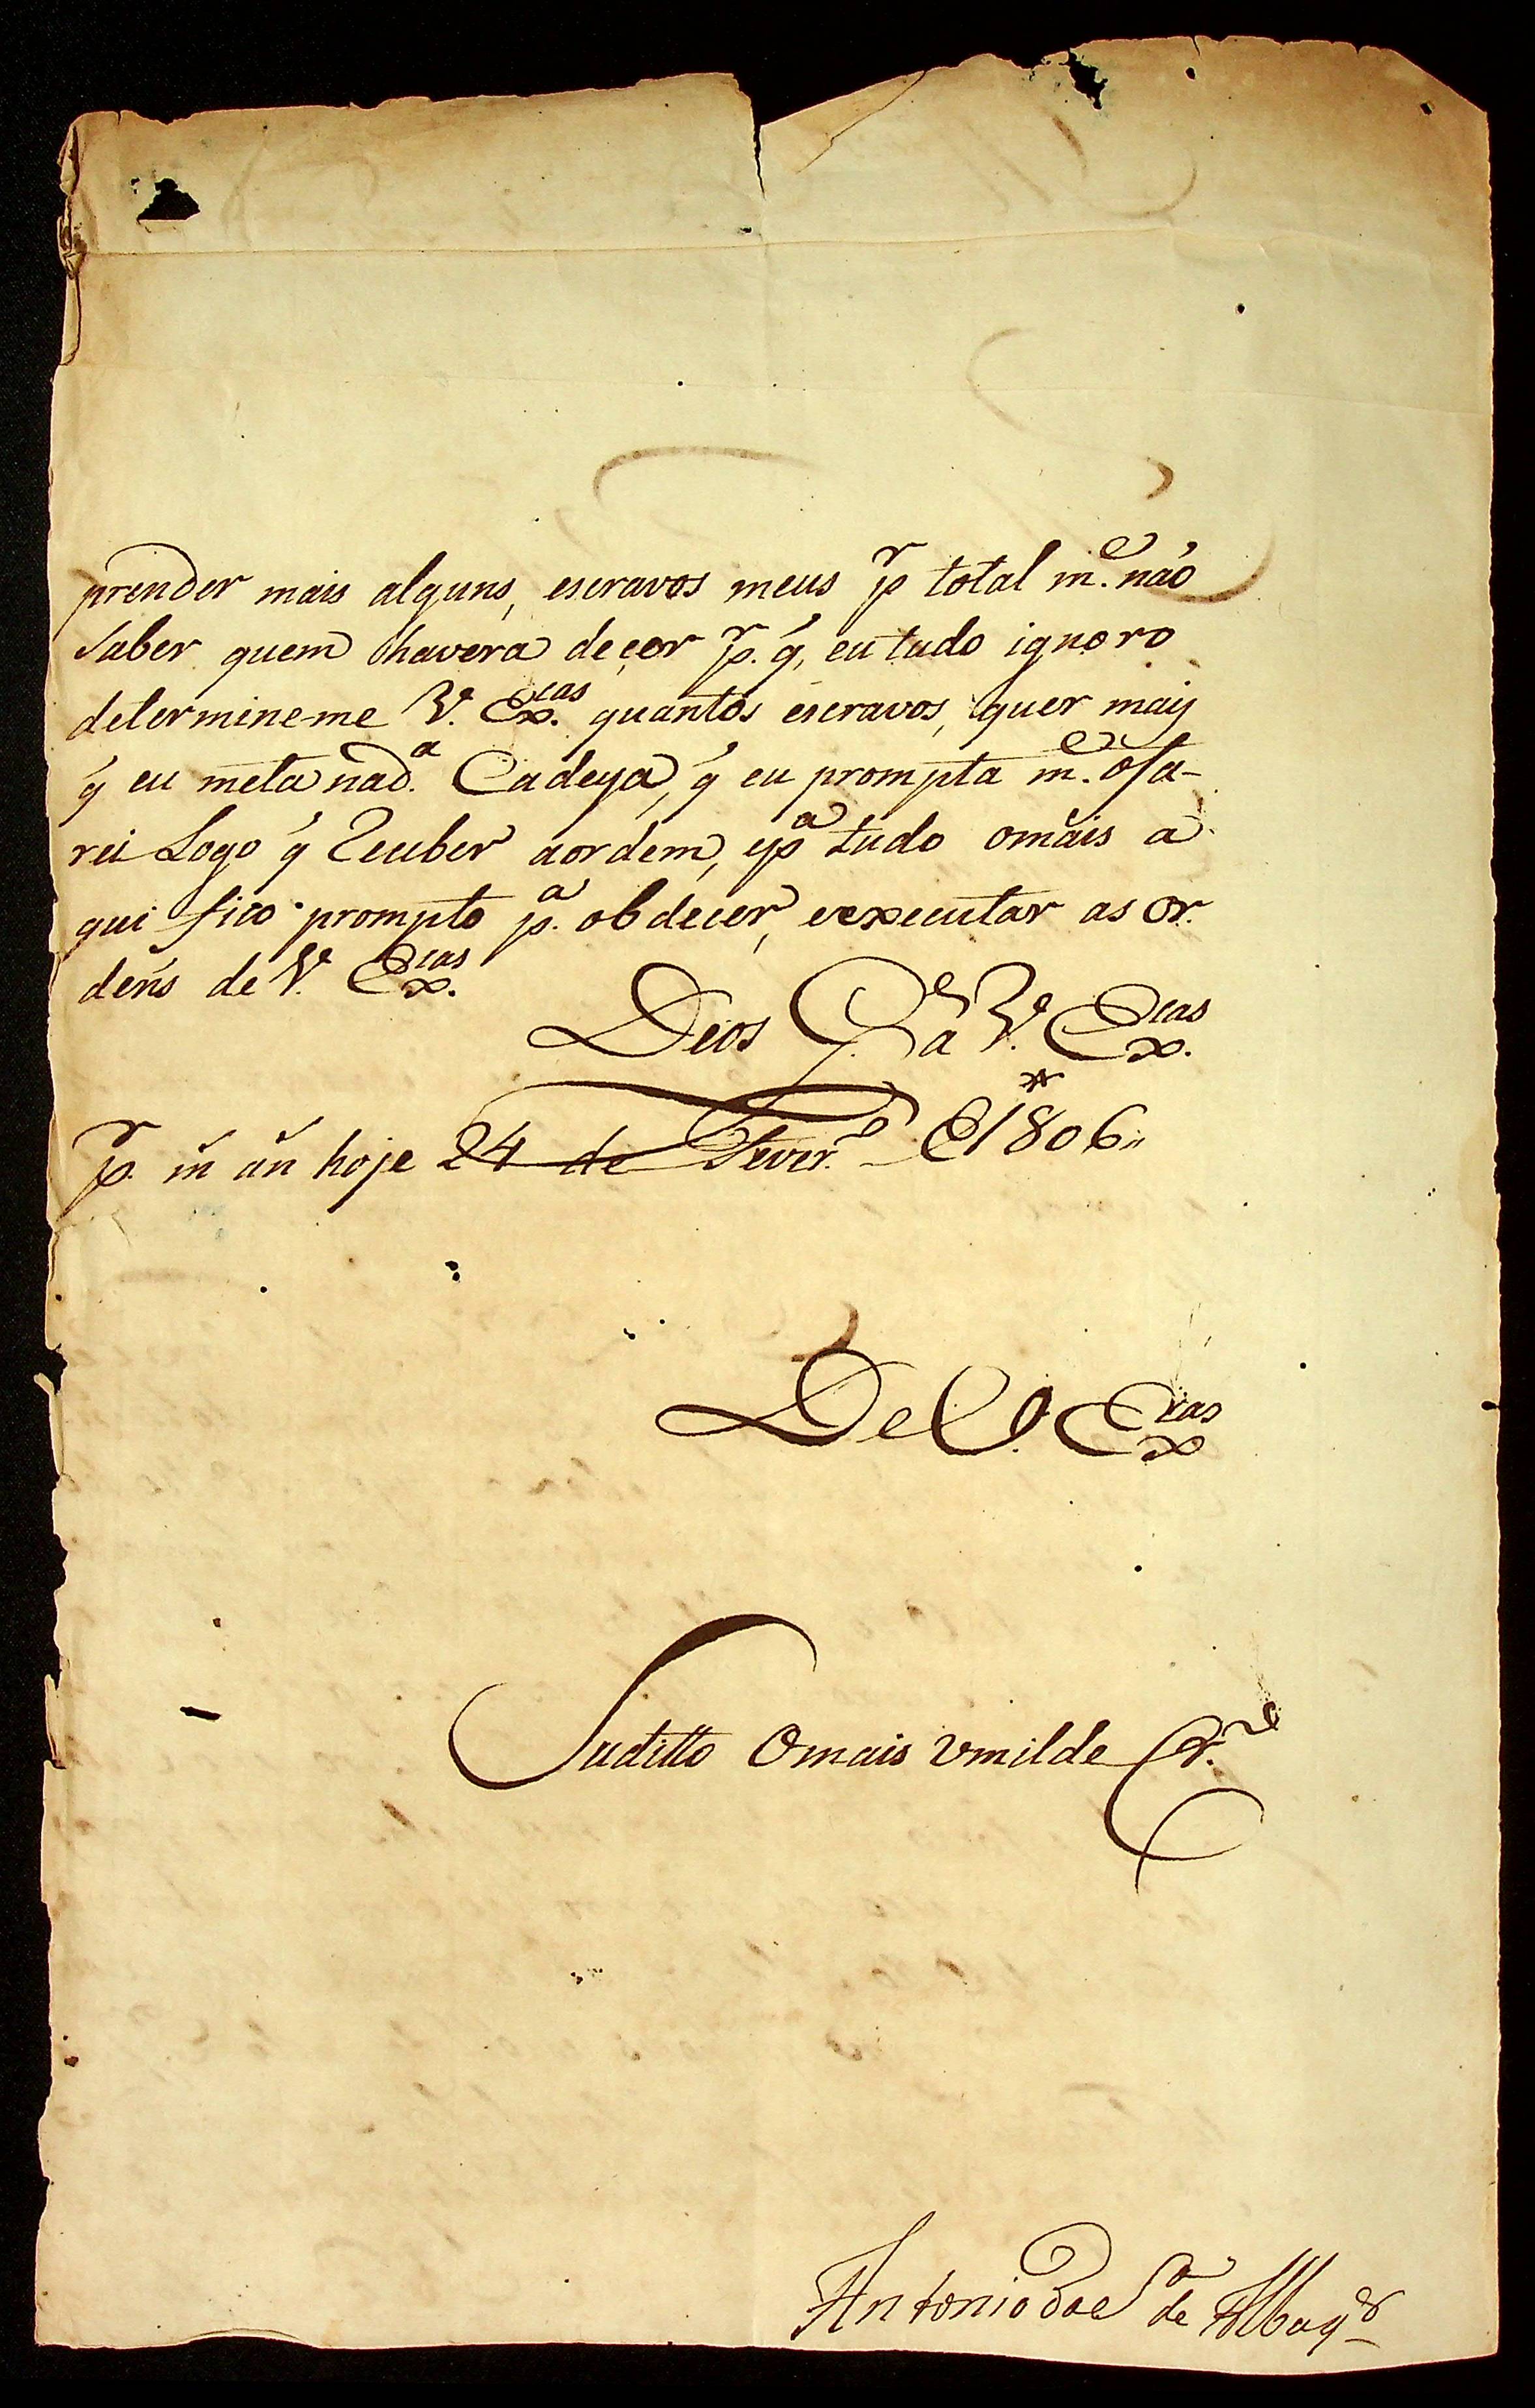 prender mais alguns, escravos meus pr total me. não
saber quem havera de ser pr. q, eu tudo ignoro
determine-me V. Excas. quantos escravos, quer mais
q eu meta na da. Cadeya, q eu prompta me. ofa-
rei Logo q Reuber a ordem, e pa tudo omais a
qui fico prompto pa. obdecer, e executar as or.
dens de V. Excas.
Deos Ge. a V. Excas.
24 de Fever.o 1806
hoje
De V. Excas
Suditto O mais Vmilde
Antonio de Albuqr